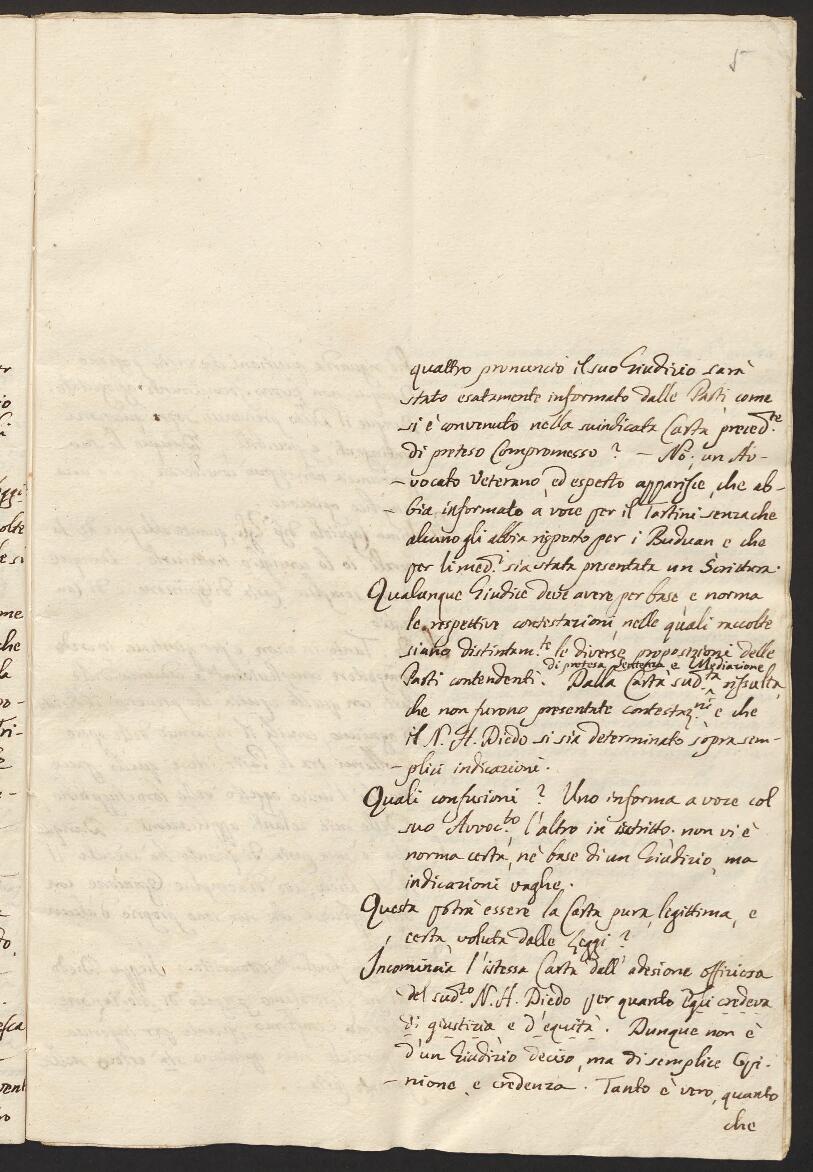 5
quattro pronunciò il suo Giudizio sarà
stato esatamente informato dalle Parti come
si è convenuto nella suindicata Carta preced.te
di preteso Compromesso? - No; un Av-
-vocato Veterano, ed esperto apparisce, che ab-
-bia informato à voce per il Tartini senza che
alcuno gli abbia risposto per i Buduan e che
per li med.i sia stata presentata un Scrittura.
Qualunque Giudice deve avere per base e norma
le respettive contestazioni, nelle quali raccolte
siano distintam.te le diverse proposizioni delle
di pretesa Sentenza e Mediazione
Parti contendenti. Dalla Carta sud.ta rissulta,
che non furono presentate contestaz.ni e che
il N. H. Diedo si sia determinato sopra sem-
-plici indicazioni.
Quali confusioni? Uno informa a voce col
suo Avvoc.to l'altro in scritto. non vi è
norma certa, nè base di un Giudizio, ma
indicazioni vaghe.
Questa potrà essere la Carta pura, legittima, e
certa voluta dalle Leggi?
Incomincia l'istessa Carta dall'adesione offiziosa
del sud.to N. H. Diedo per quanto Egli credeva
di giustizia e d'equità. Dunque non è
d'un Giudizio deciso, ma di semplice Opi-
-nione, e credenza. Tanto è vero, quanto
che